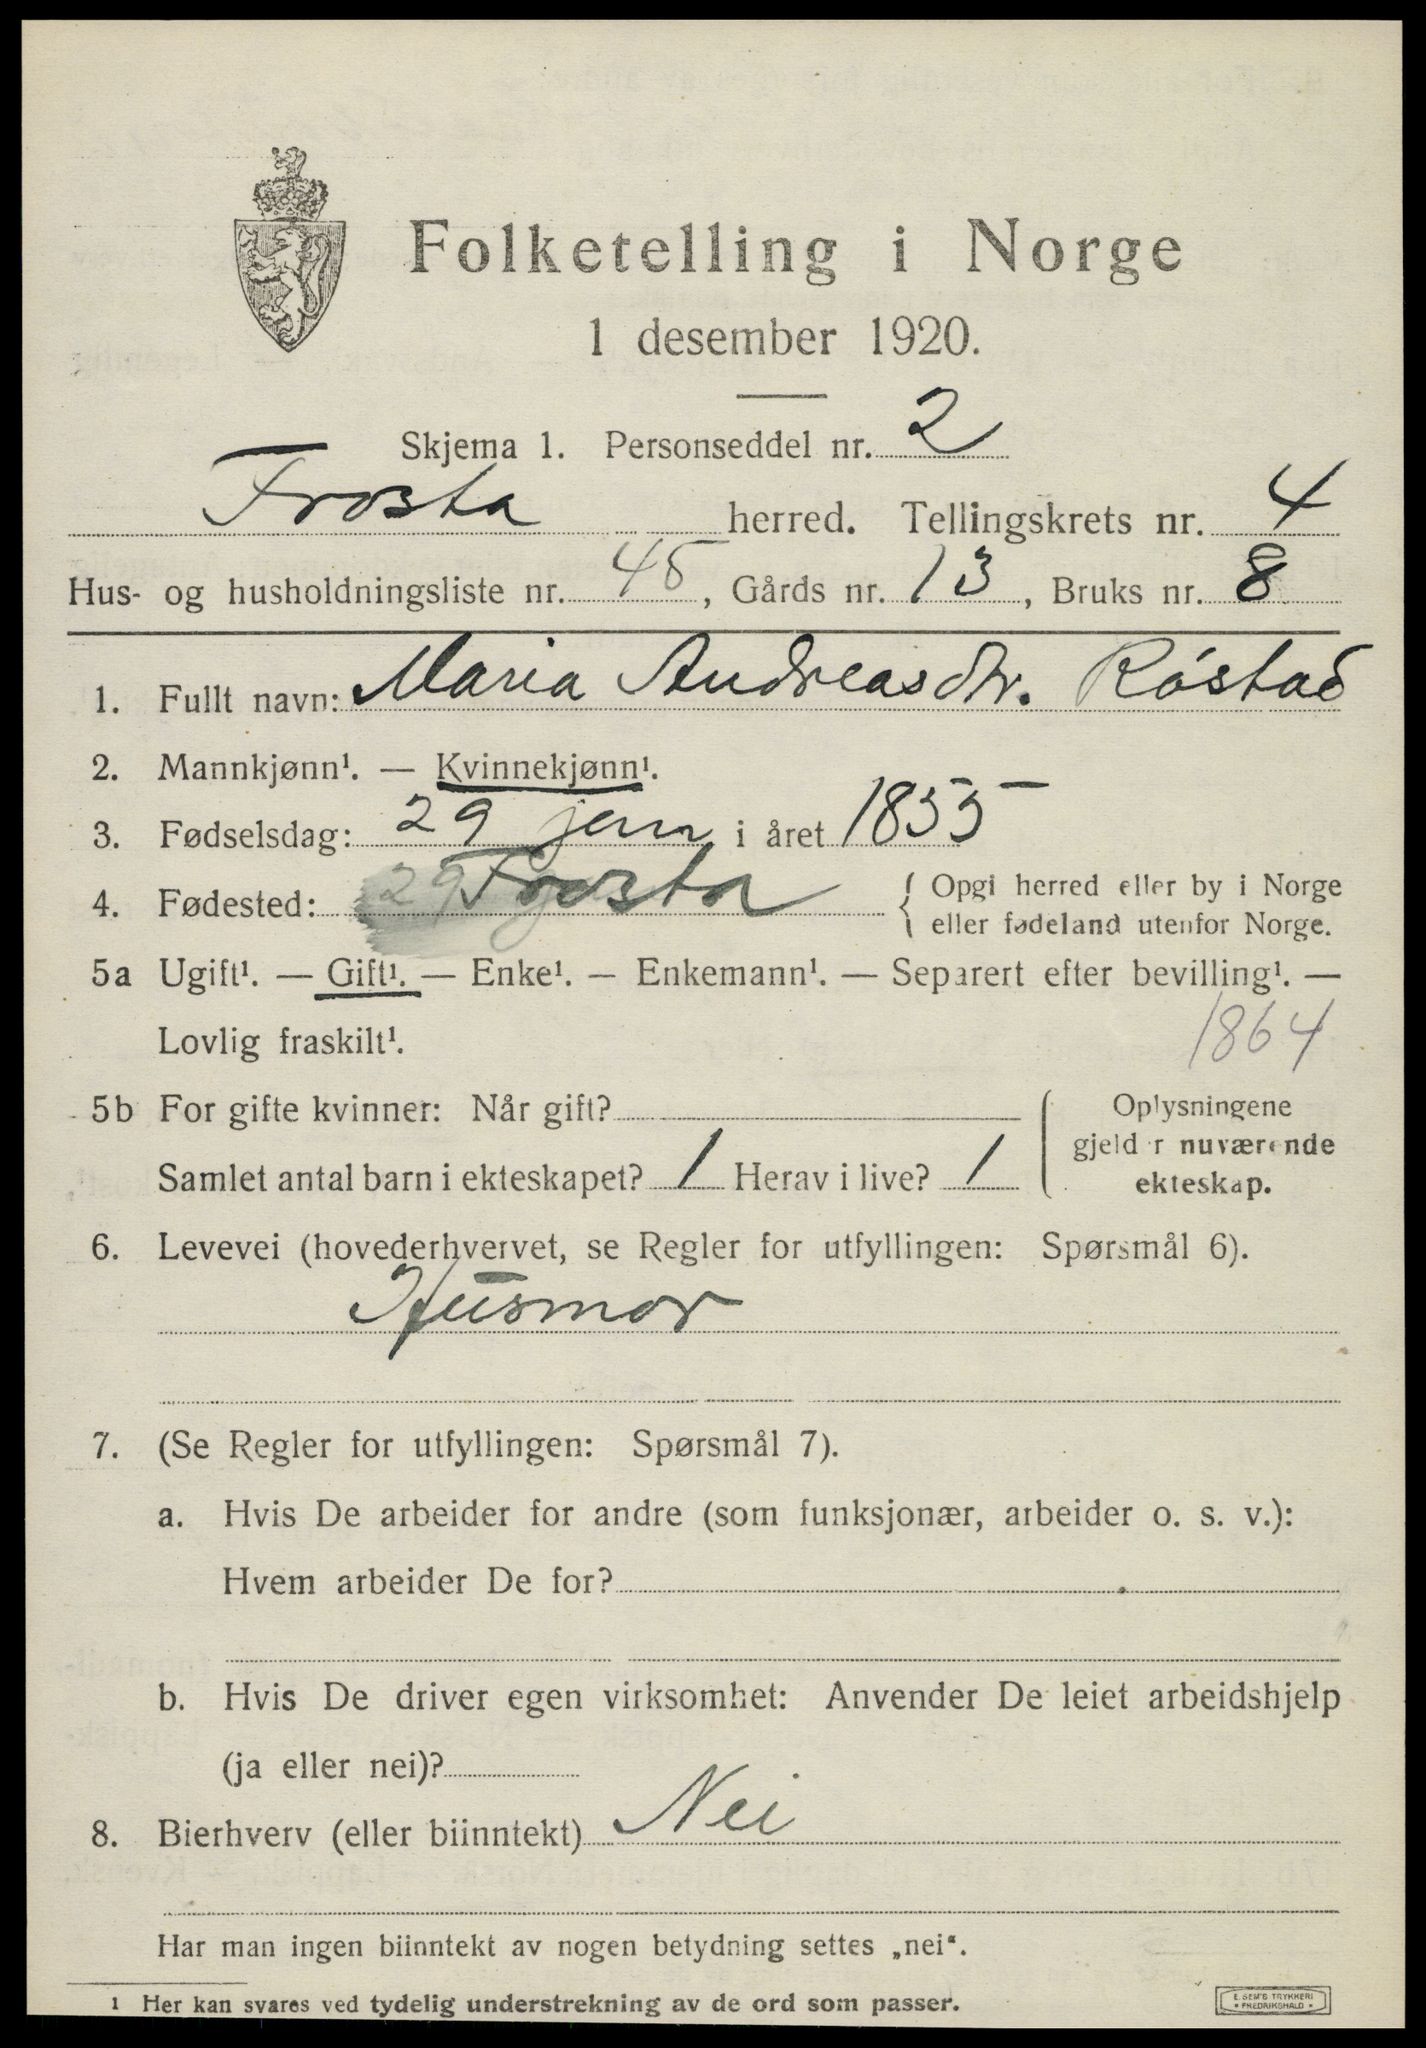 Folketelling i Norge
1 desember 1920.
Skjema 1. Personseddel nr. 2
Frosta herred. Tellingskrets nr. 4
Hus- og husholdningsliste nr. 45, Gårds nr. 13, Bruks nr. 8
1. Fullt navn: Maria Andreasdtr. Róstad
2. Mannkjønn¹. — Kvinnekjønn¹.
3. Fødselsdag: 29 jan i året 1855
4. Fødested: Frosta { Opgi herred eller by i Norge
eller fødeland utenfor Norge.
5a Ugift¹. — Gift¹. — Enke¹. — Enkemann¹. — Separert efter bevilling¹. —
Lovlig fraskilt¹.
1864
5b For gifte kvinner: Når gift?
Samlet antal barn i ekteskapet? 1 Herav i live? 1
Oplysningene
gjelder nuværende
ekteskap.
6. Levevei (hovederhvervet, se Regler for utfyllingen: Spørsmål 6).
Husmor
7. (Se Regler for utfyllingen: Spørsmål 7).
a. Hvis De arbeider for andre (som funksjonær, arbeider o. s. v.):
Hvem arbeider De for?
b. Hvis De driver egen virksomhet: Anvender De leiet arbeidshjelp
(ja eller nei)?
8. Bierhverv (eller biinntekt) Nei
Har man ingen biinntekt av nogen betydning settes „nei“.
1 Her kan svares ved tydelig understrekning av de ord som passer.
E. SEM'S TRYKKERI
• FREDRIKSHALD •